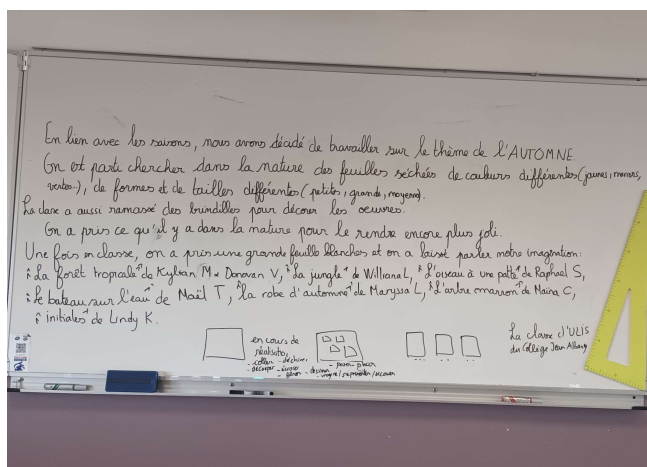 En lien avec les saisons, nous avons décidé de travailler sur le thème de L'AUTOMNE
On est parti chercher dans la nature des feuilles séchées de couleurs différentes (jaunes, marrons,
vertes..), de formes et de tailles différentes (petits, grands, moyens).
La classe a aussi ramassé des brindilles pour décorer les oeuvres.
On a pris ce qu'il y a dans la nature pour le rendre encore plus joli.
Une fois en classe, on a pris une grande feuille blanches et on a laissé parler notre imagination:
"La forêt tropicale" de Kylian M & Donovan V, "La jungle" de Williana L, "L'oiseau à une patte" de Raphael S,
"Le bateau sur l'eau" de Maël T, "la robe d'automne" de Maryssa L, "L'arbre marron" de Maïna C,
"initiales" de Lindy K.
en cours de
réalisation
- coller - déchirer
- découper - écraser
- dessiner
- poser - placer
La classe d'ULIS
du Collège Jean Albany